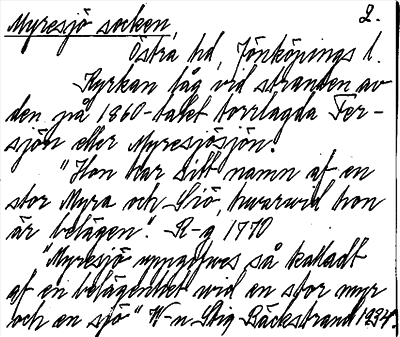 Myresjö socken, 2.
Östra hd, Jönköpings l.
Kyrkan låg vid stranden av
den på 1860-talet torrlagda Fer-
sjön eller Myresjösjön.
"Hon har sitt namn af en
stor Myra och Siö, hwarwid hon
är belägen". R-g 1770
"Myresjö uppgifves så kalladt
af en belägenhet wid en stor myr
och en sjö" W-n Stig Bäckstrand 1934.